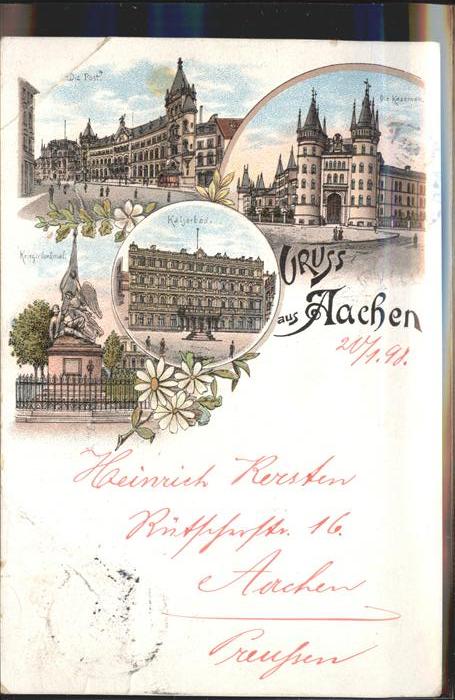 „Die Post“
Die Kasernen.
Kaiserbad.
Kriegerdenkmal.
Gruss
aus Aachen
20/1.98.
Heinrich Kersten
Rütscherstr. 16.
Aachen
Preußen